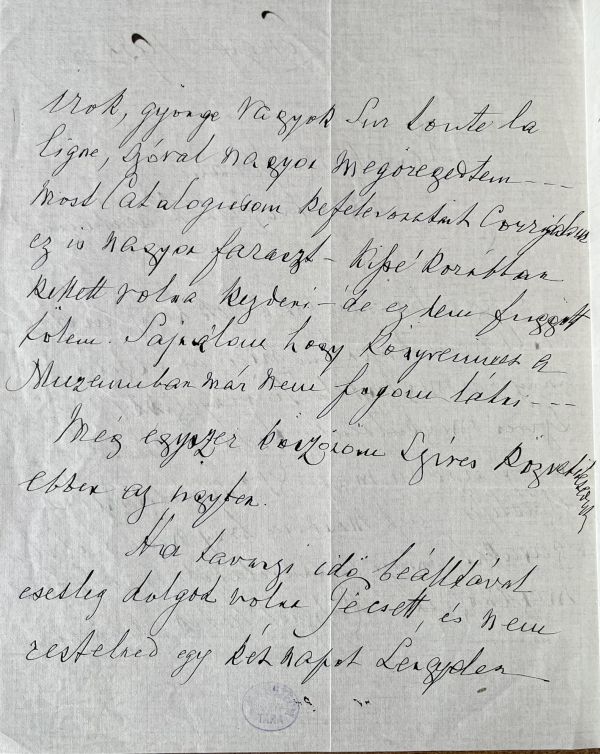 irok, gyönge vagyok Sur toute la
ligne, szóval nagyon megöregedtem - - -
most Catalogusom kefelevonatait Corrigálom
ez is nagyon fáraszt - kissé korábban
kellett volna kezdeni - de ez nem függött
tölem. Sajnálom hogy könyveimet a
Muzeumban már nem fogom látni - - -
Még egyszer köszönöm Szíves
ebben az ügyben.
Ha tavaszi idő beálltával
esetleg dolgod volna Pécsett, és nem
restelned egy két napot Lengyelen
TÁRA